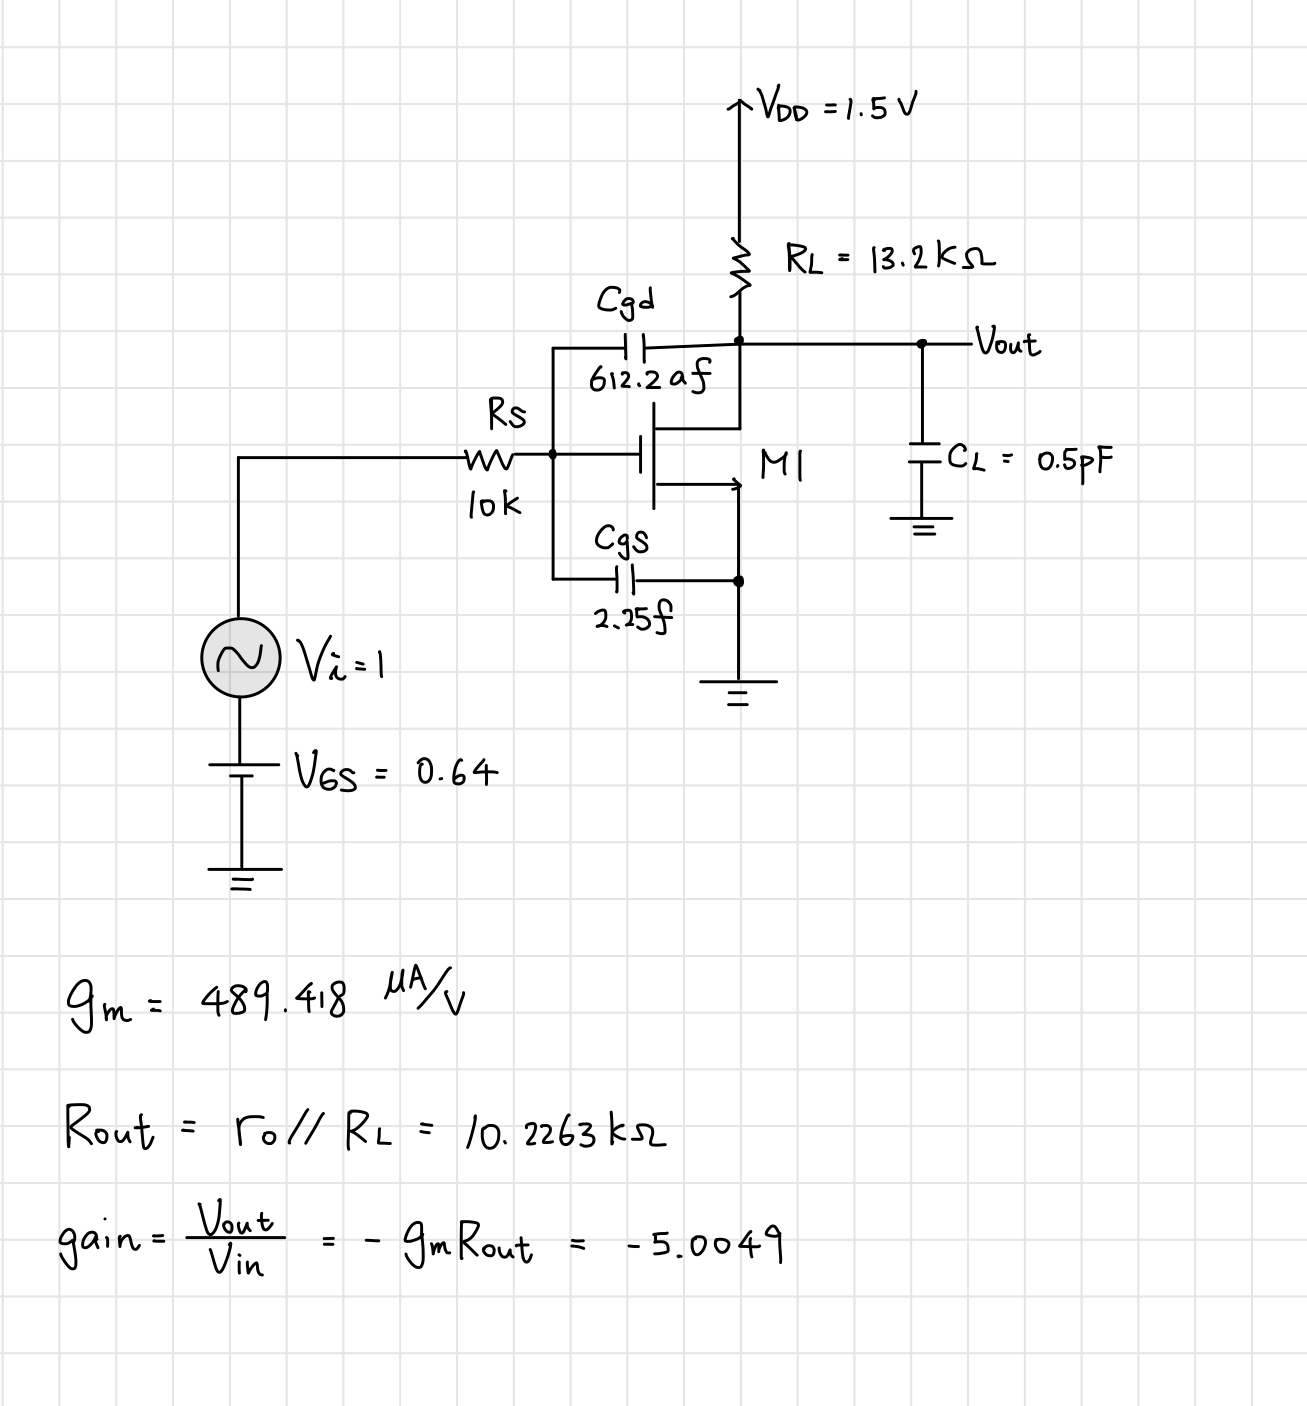 VDD = 1.5 V
RL = 13.2 kΩ
Cgd
612.2 af
Vout
Rs
10k
M1
CL = 0.5pF
Cgs
2.25f
Vi = 1
VGS = 0.64
gm = 489.418 μA/V
Rout = ro // RL = 10.2263 kΩ
gain = Vout/Vin = - gmRout = -5.0049